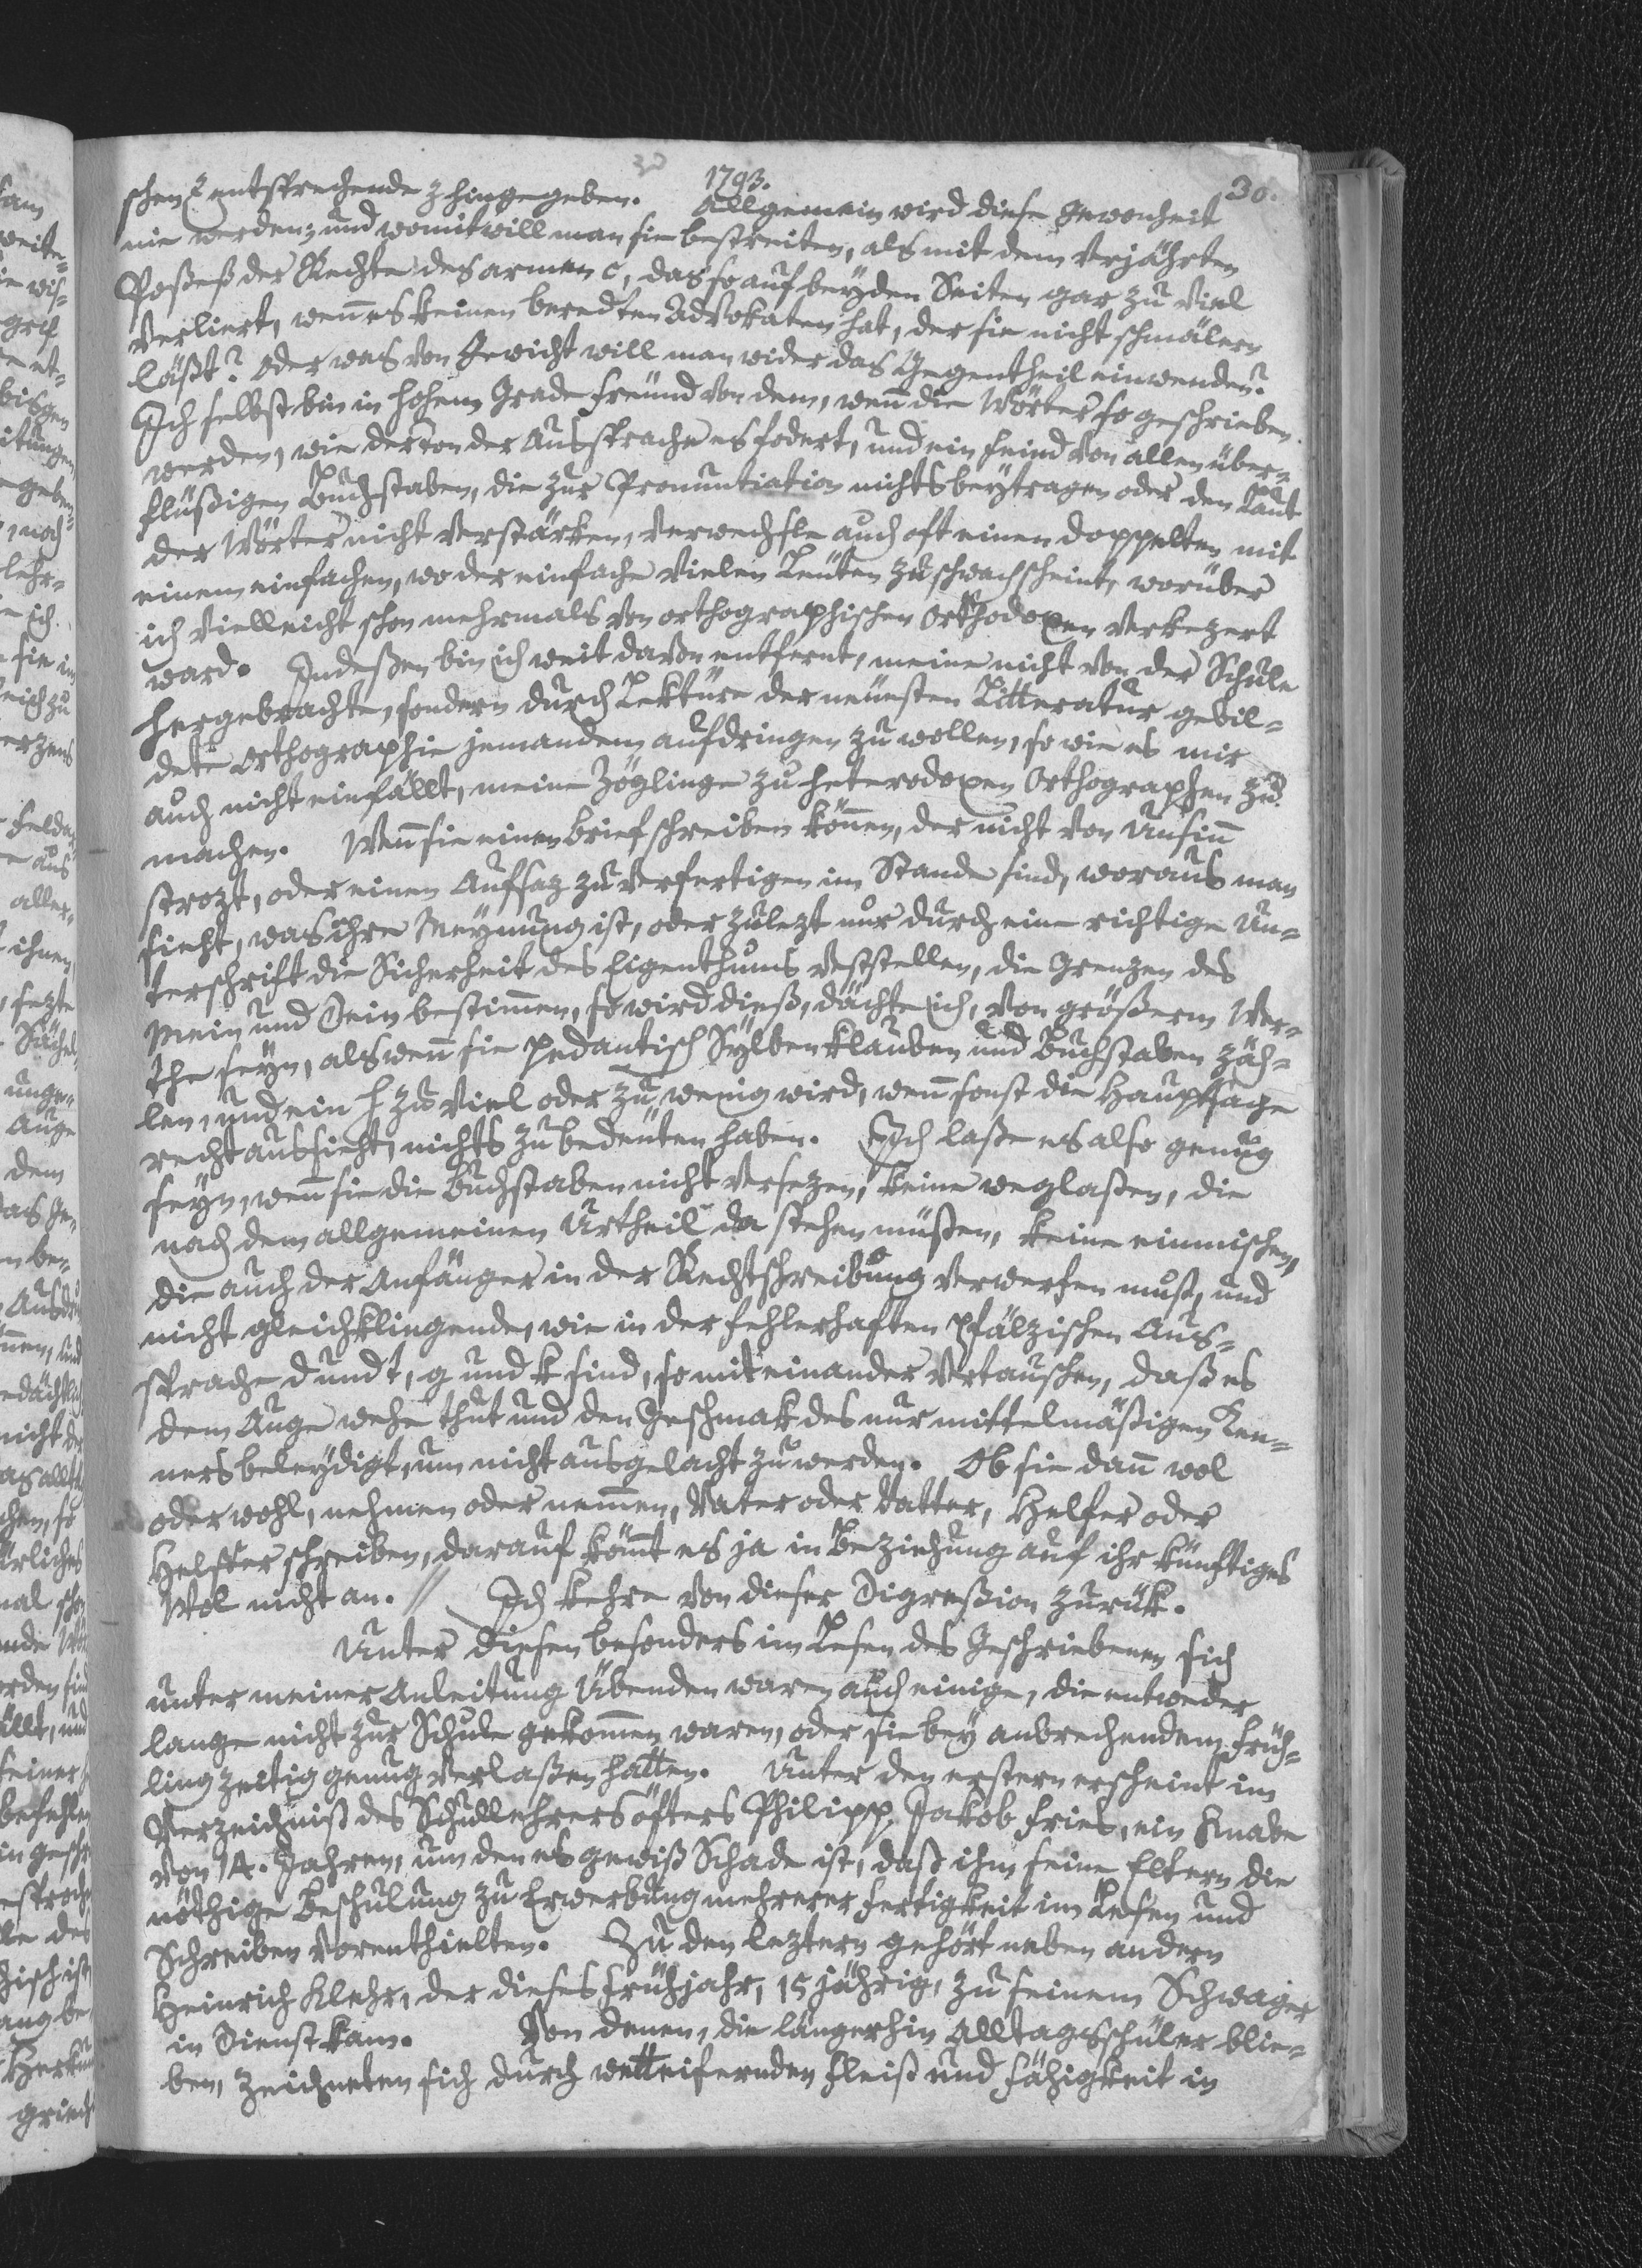 30
1793.
30.
schen ζ entsprechende z hingegeben. Allgemein wird diese Gewonheit
nie werden; und womit will man sie bestreiten, als mit dem verjährten
Poßeß der Rechte des armen c, das so auf beyden Seiten gar zu viel
verliert, wenn es keinen beredten Advokaten hat, der sie nicht schmälern
läßt? Oder was von Gewicht will man wider das Gegentheil einwenden?
Ich selbst bin in hohem Grade Freund von dem, wenn die Wörter so geschrieben
werden, wie der Ton der Aussprache es fodert, und ein Feind von allen über-
flüßigen Buchstaben, die zur Pronuntiation nichts beytragen oder den Laut
der Wörter nicht verstärken, verwechsle auch oft einen doppelten mit
einem einfachen, wo der einfache vielen Leuten zu schwach scheint, worüber
ich vielleicht schon mehrmals von orthographischen Orthodoxen verkezert
ward. Indeßen bin ich weit davon entfernt, meine nicht von der Schule
hergebrachte, sondern durch Lektüre der neuesten Litteratur gebil-
dete Orthographie jemandem aufdringen zu wollen, so wie es mir
auch nicht einfällt, meine Zöglinge zu heterodoxen Orthographen zu
machen. Wenn sie einen Brief schreiben können, der nicht von Unsinn
strozt, oder einen Aufsaz zu verfertigen im Stande sind, woraus man
sieht, was ihre Meynung ist, oder zulezt nur durch eine richtige Un-
terschrift die Sicherheit des Eigenthums veststellen, die Grenzen des
Mein und Dein bestimmen, so wird dieß, dächte ich, von größerm Wer-
the seyn, als wenn sie pedantisch Sylben klauben und Buchstaben zäh-
len, und ein h zu viel oder zu wenig wird, wenn sonst die Hauptsage
recht aussieht, nichts zu bedeuten haben. Ich laße es also genug
seyn, wenn sie die Buchstaben nicht versezen, keine weglaßen, die
nach dem allgemeinen Urtheil da stehen müßen, keine einmischen,
die auch der Anfänger in der Rechtschreibung verwerfen muß, und
nicht gleichklingende, wie in der fehlerhaften pfälzischen Aus-
sprache d und t, g und k sind, so miteinander vertauschen, daß es
dem Auge wehe thut und den Geschmak des nur mittelmäßigen Ken-
ners beleydigt, um nicht ausgelacht zu werden. Ob sie dann wol
oder wohl, nehmen oder nemmen, Vater oder Vatter, Helfer oder
Helffer schreiben, darauf kömt es ja in Beziehung auf ihr künftiges
Wol nicht an. // Ich kehre von dieser Digreßion zurük.
Unter diesen besonders im Lesen des Geschriebenen sich
unter meiner Anleitung Übenden waren auch einige, die entweder
lange nicht zur Schule gekommen waren, oder sie bey anbrechendem Früh-
ling zeitig genug verlaßen hatten. Unter den erstern erscheint im
Verzeichniß des Schullehrers öfters Philipp Jakob Fries, ein Knabe
von 14. Jahren, um den es gewiß Schade ist, daß ihm seine Eltern die
nöthige Beschulung zu Erwerbung mehrerer Fertigkeit im Lesen und
Schreiben vorenthielten. Zu den leztern gehört neben andern
Heinrich Klehr, der dieses Frühjahr, 15 jährig, zu seinem Schwager
in Dienst kam. Von denen, die längerhin Alltagsschüler blie-
ben, zeichneten sich durch wetteifernden Fleiß und Fähigkeit in